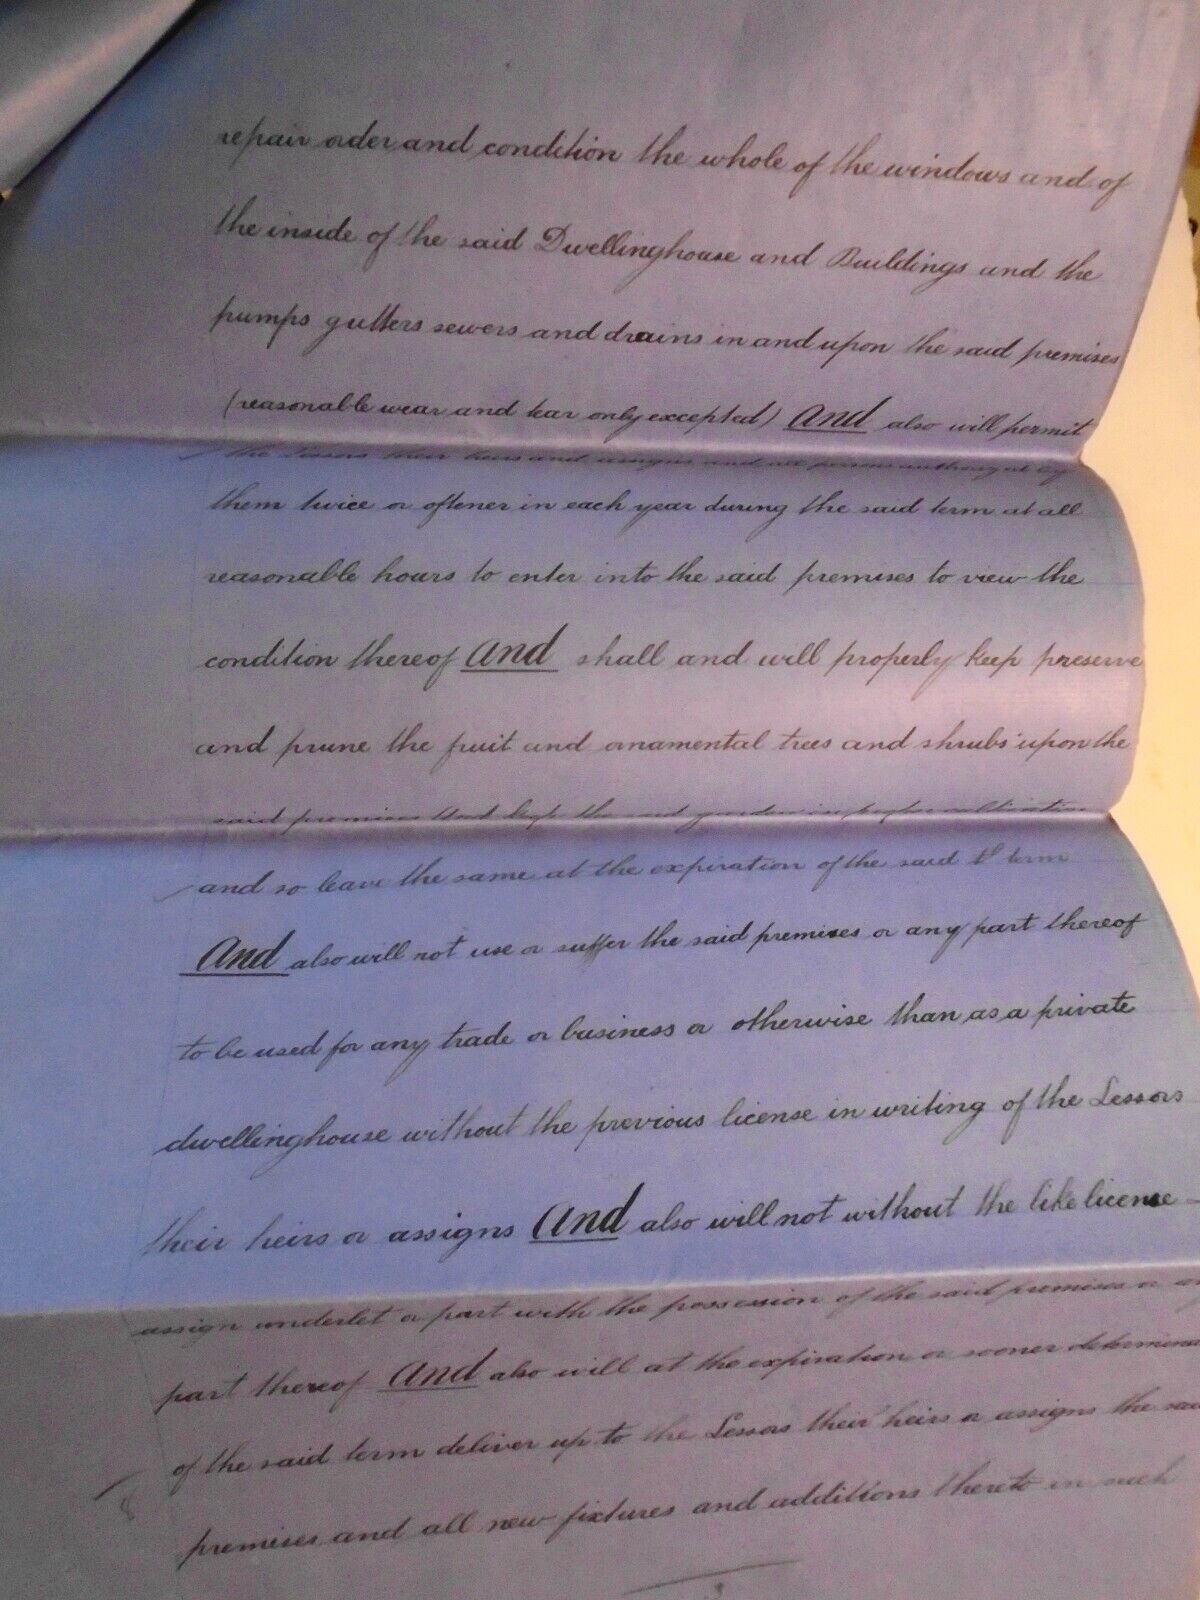 repair order and condition the whole of the windows and of
the inside of the said Dwellinghouse and Buildings and the
pumps gutters sewers and drains in and upon the said premises
(reasonable wear and tear only excepted) And also will permit
the Lessors their heirs and assigns and all persons authorized by
them twice or oftener in each year during the said term at all
reasonable hours to enter into the said premises to view the
condition thereof And shall and will properly keep preserve
and prune the fruit and ornamental trees and shrubs upon the
said premises And keep the said garden in proper cultivation
and so leave the same at the expiration of the said term
And also will not use or suffer the said premises or any part thereof
to be used for any trade or business or otherwise than as a private
dwellinghouse without the previous license in writing of the Lessors
their heirs or assigns And also will not without the like license
assign underlet or part with the possession of the said premises or
part thereof And also will at the expiration or sooner
of the said term deliver up to the Lessors their heirs or assigns the
premises and all new fixtures and additions thereto in such
3